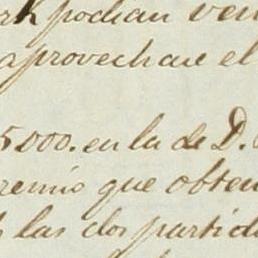 rk podian ven
aprovechase el
5000. en la de D.
remio que obten
las dos partid